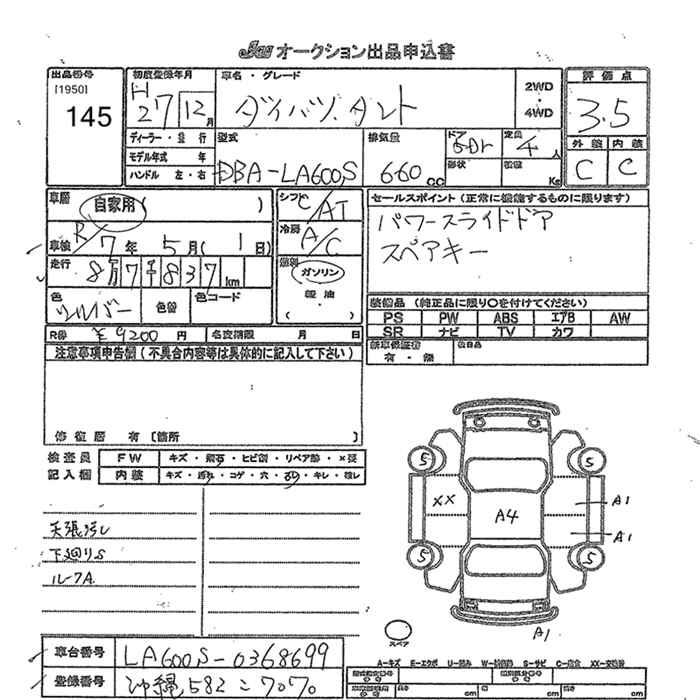 JAA オークション出品申込書
出品番号
[1950]
145
初度登録年月
H
27 12 月
車名・グレード
ダイハツ.タント
2WD
・
4WD
評価点
3.5
外装 内装
C C
ディーラー・並行
モデル年式 年
ハンドル 左・右
型式
DBA-LA600S
排気量
660 CC
ドア
5Dr
形状
定員
4 人
積載
Kg
車歴
自家用 ( )
車検 R 7年 5月( 1日)
走行
8万7千837 km
色
シルバー
色替
色コード
シフト
C/AT
冷房
A/C
燃料
ガソリン
軽油
( )
セールスポイント (正常に機能するものに限ります)
パワースライドドア
スペアキー
装備品 (純正品に限り○を付けてください)
PS PW ABS エアB AW
SR ナビ TV カワ
新車保証書
有・無
後日品
R券 ¥9200 円
名変期限 月 日
注意事項申告欄(不具合内容等は具体的に記入して下さい)
修復歴 有 [箇所 ]
検査員
記入欄
FW キズ・飛石・ヒビ割・リペア跡・×要
内装 キズ・汚れ・コゲ・穴・スレ・キレ・破レ
天張汚レ
下廻りS
ルーフA
5 5
XX A4 A1
A1
5 5
A1
スペア
車台番号 LA600S-0368699
登録番号 沖縄 582 こ 7070
A-キズ E-エクボ U-凹み W-補修跡 S-サビ C-腐食 XX-交換跡
長さ cm 幅 cm 高さ cm